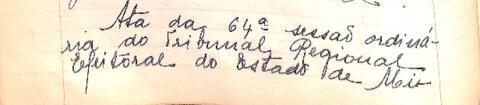 Ata da 64ª sessão ordiná-
ria do Tribunal Regional
Eleitoral do Estado de Mis